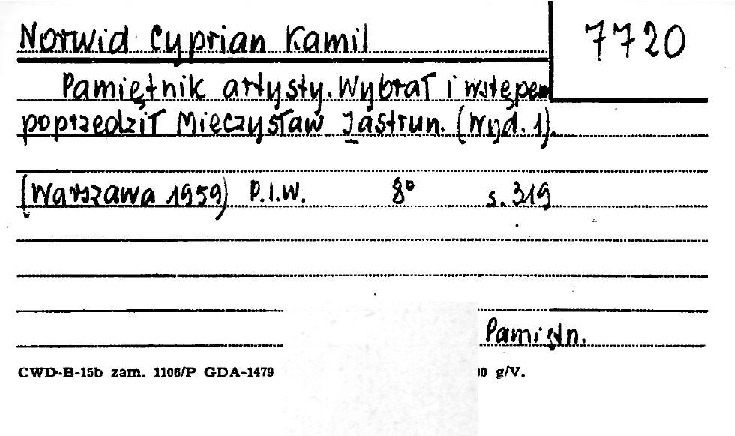 Norwid Cyprian Kamil
7720
Pamiętnik artysty. Wybrał i wstępem
poprzedził Mieczysław Jastrun. (Wyd. 1).
(Warszawa 1959) P.I.W. 8° s. 319
Pamiętn.
CWD-B-15b zam. 1106/P GDA-1479 g/V.